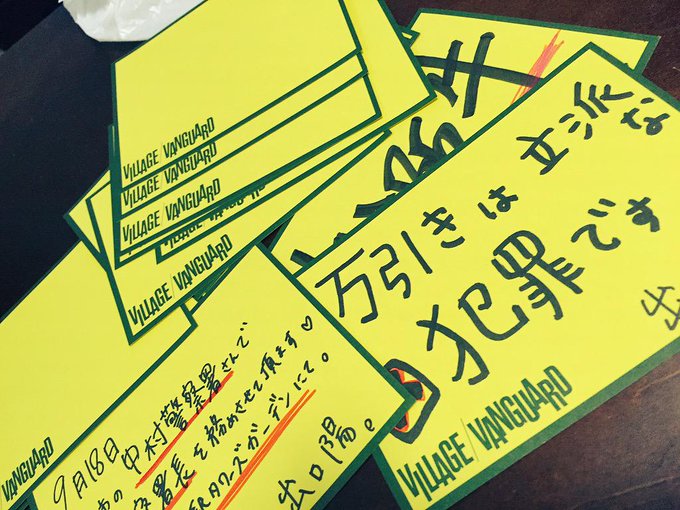 VILLAGE/VANGUARD
VILLAGE/VANGUARD
VILLAGE/VANGUARD
VILLAGE/VANGUARD
万引きは立派な
犯罪です
出
VILLAGE/VANGUARD
VANGUARD
9月18日
中村警察署さんで
の 署長を務めさせて頂きます♡
タワーズガーデンにて。
出口陽。